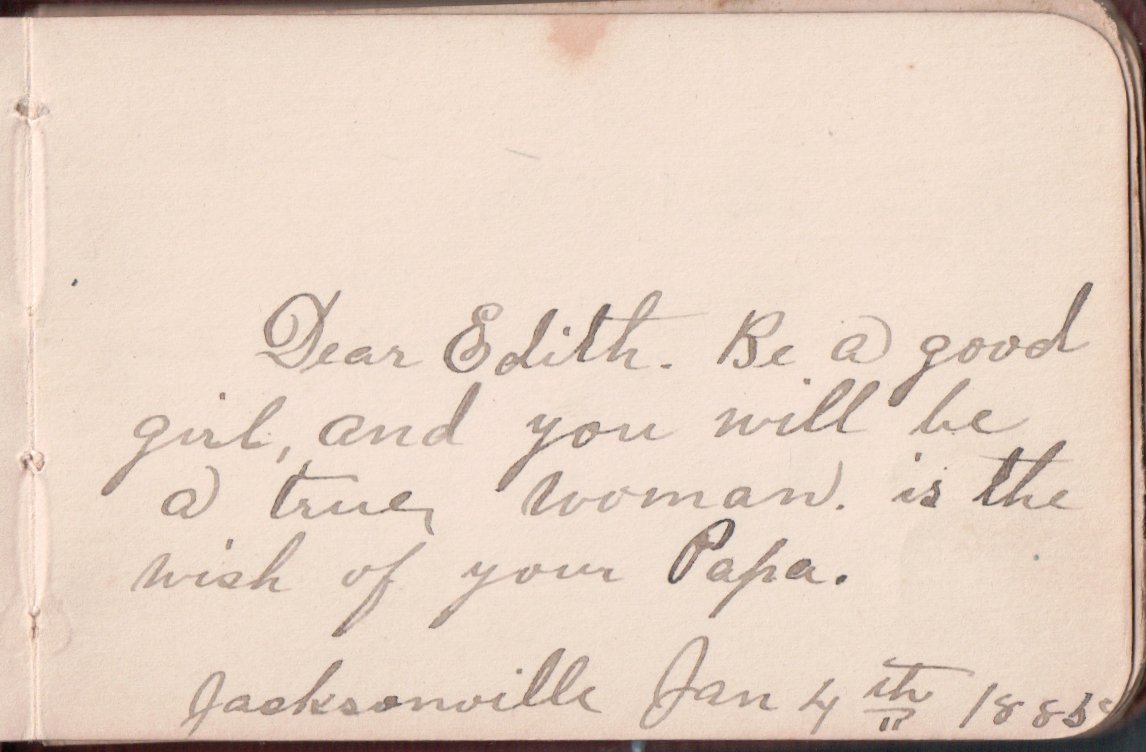 Dear Edith. Be a good
girl, and you will be
a true, woman. is the
wish of your Papa.
Jacksonville Jan 4th